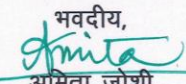 भवदीय,
Amita
अमिता जोशी